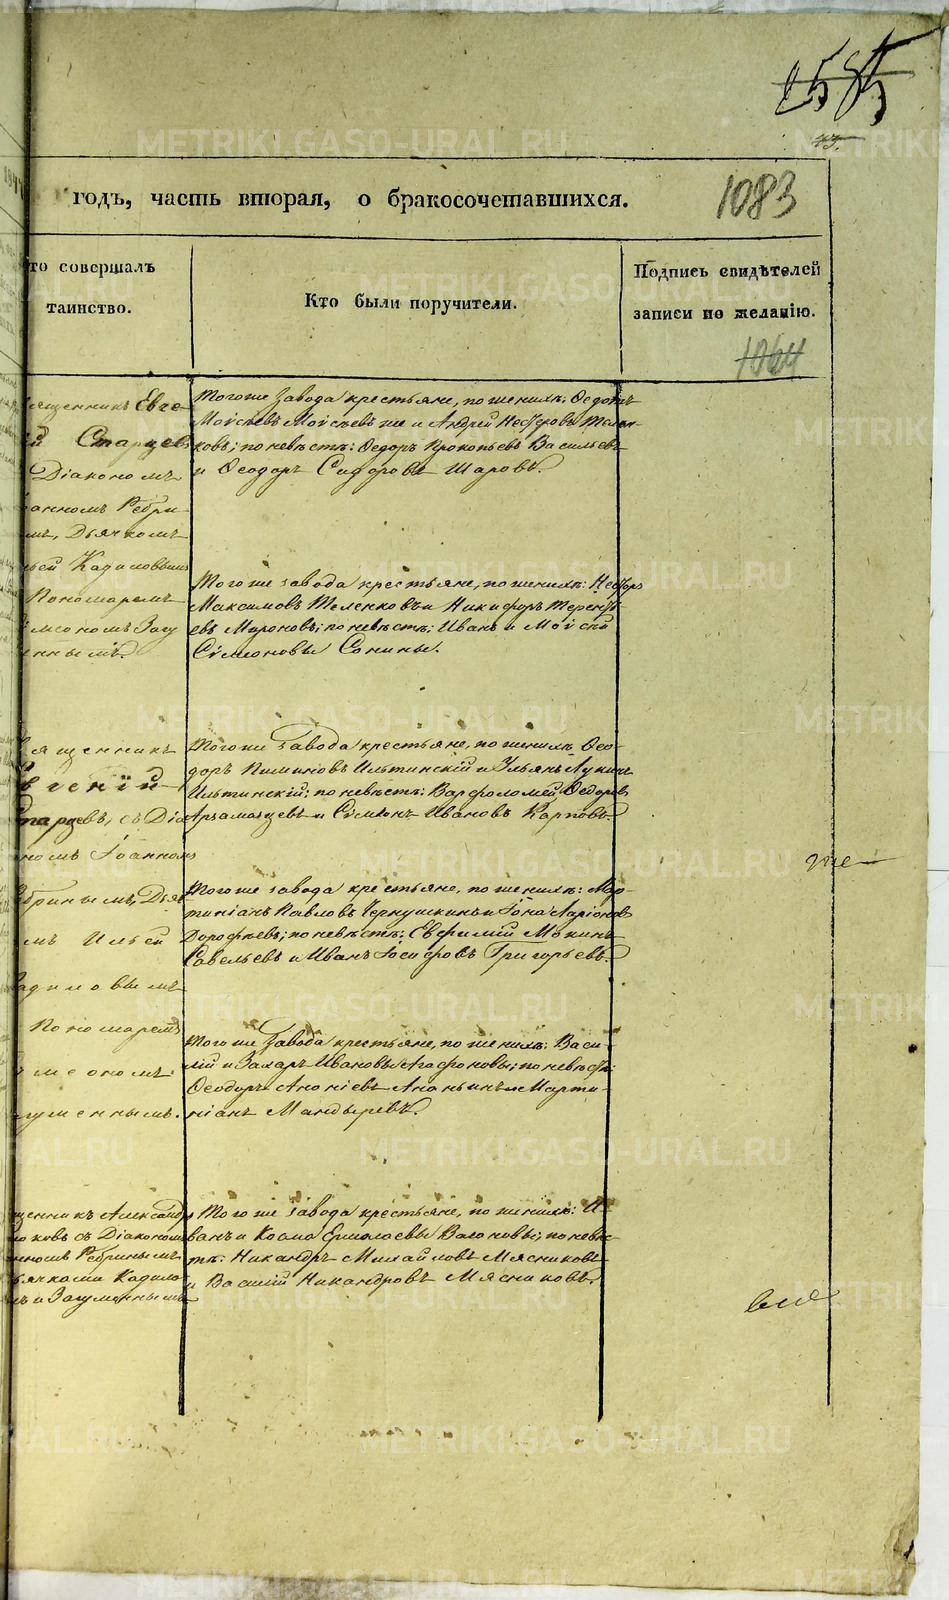 1585
43.
годъ, часть вторая, о бракосочетавшихся.
1083
то совершалъ
таинство.
Кто были поручители.
Подпись свидѣтелей
записи по желанію.
1064
ященникъ Евге-
ій Старцевъ
Діакономъ
анномъ Ребри-
мъ, Дьячкомъ
ьей Кадиловымъ
Пономаремъ
імеономъ Загу
еннымъ.
Тогоже завода крестьяне, по женихѣ: Федотъ
Моисѣевъ Моисѣевъ же и Андрей Несторовъ Телен-
ковъ; по невѣстѣ: Федоръ Прокопьевъ Васильевъ
и Феодоръ Сидоровъ Шаровъ.
Тогоже завода крестьяне, по женихѣ: Несторъ
Максимовъ Теленковъ и Никифоръ Терентъ
евъ Мироновъ; по невѣстѣ: Иванъ и Моисей
Сімеоновы Сонины.
ященникъ
вгеній
Старцевъ, съ Діа
номъ Іоанномъ
Ребринымъ, Дьяч
мъ Ильей
адиловымъ
Пономаремъ
імеономъ
гуменнымъ.
Тогоже завода крестьяне, по женихѣ Фео-
доръ Пименовъ Ильтинскій и Ульянъ Лукинъ
Ильтинскій; по невѣстѣ: Варфоломей Федоровъ
Арзамасцевъ и Сімеонъ Ивановъ Карповъ.
Тогоже завода крестьяне, по женихѣ: Мар-
тиніанъ Павловъ Чернушкинъ и Іона Ларіоновъ
Дорофѣевъ; по невѣстѣ: Евфимій Мокинъ
Савельевъ и Иванъ Іосифовъ Григорьевъ.
Тогоже завода крестьяне, по женихѣ: Васи-
лій и Захаръ Ивановы Агафоновы; по невѣстѣ:
Феодоръ Ананіевъ Ананьинъ и Марти-
ніанъ Мандыревъ.
щенникъ Александръ
ковъ съ Діакономъ
номъ Ребринымъ
ьячками Кадило-
мъ и Загуменнымъ
Тогоже завода крестьяне, по женихѣ: И-
ванъ и Косма Ермолаевы Вагоновы; по невѣс-
тѣ: Никандръ Михайловъ Мясниковъ
и Василій Никандровъ Мясниковъ.
METRIKI.GASO-URAL.RU